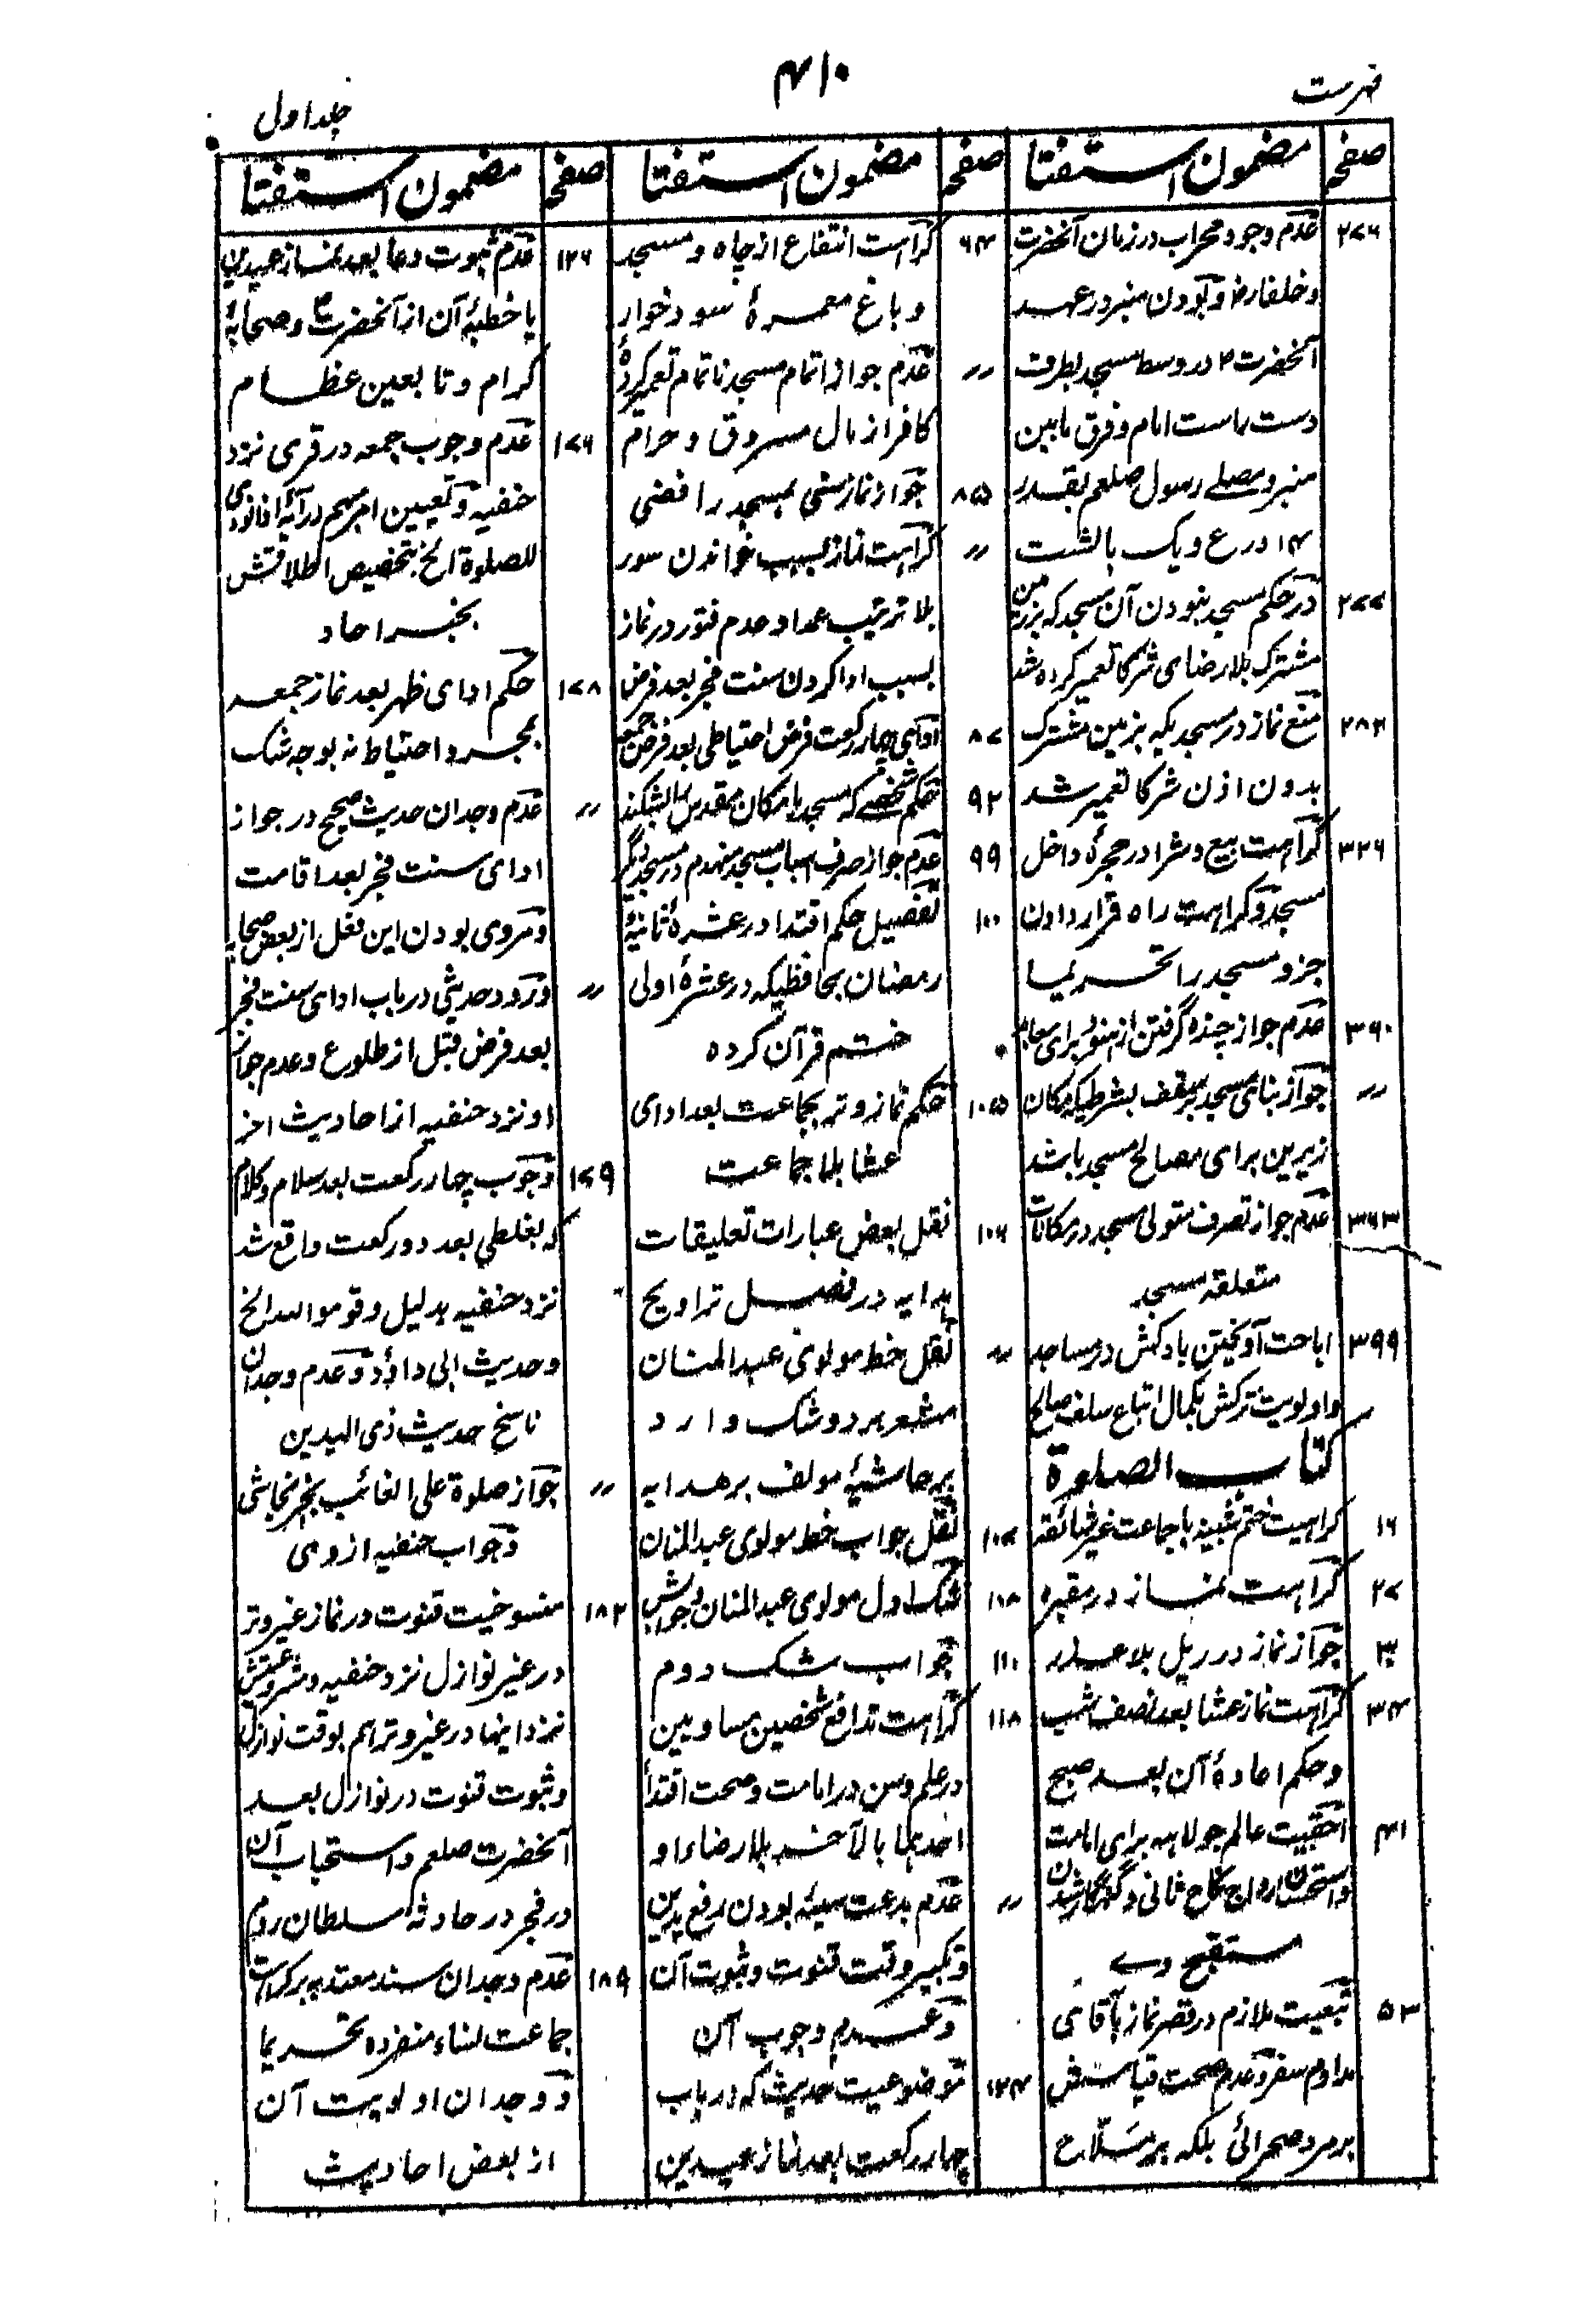 فہرست
۴۱۰
جلد اول
صفحہ مضمون استفتا
۲۷۶ عدم وجود محراب در زمان آنحضرت
و خلفا رض و بودن منبر در عہد
آنحضرت ؐ در وسط مسجد بطرف
دست راست امام و فرق مابین
منبر و مصلے رسول صلعم بقدر
۱۴ درع و یک بالشت
۲۷۷ در حکم مسجد نبودن آن مسجد کہ بر زمین
مشترک بلا رضای شرکا تعمیر کردہ شد
۲۸۲ منع نماز در مسجدیکہ بزمین مشترک
بدون اذن شرکا تعمیر شد
۳۲۶ کراہت بیع و شرا در حجرۂ داخل
مسجد و کراہت راہ قرار دادن
جزو مسجد را تحریما
۳۶۰ عدم جواز چندہ گرفتن از ہنود برای معابد
〃 جواز بنای مسجد بر سقف بشرطیکہ مکان
زیرین برای مصالح مسجد باشد
۳۶۳ عدم جواز تصرف متولی مسجد در مکانات
متعلقہ مسجد
۳۹۹ اباحت آویختن بادکش در مساجد
و اولویت ترکش بکمال اتباع سلف صالح
کتاب الصلوۃ
۱۶ کراہیت ختم شبینہ با جماعت غیر شائقہ
۲۷ کراہت نماز در مقبرہ
۳۰ جواز نماز در ریل بلا عذر
۳۴ کراہت نماز عشا بعد نصف شب
و حکم اعادۂ آن بعد صبح
۴۱ احقیت عالم جولاہہ برای امامت
و استحسان رواج نکاح ثانی و گنہگار شدن
مستقبح وے
۵۳ تبعیت ملازم در قصر نماز بآقای
مداوم سفر و عدم صحت قیاسش
بر مرد صحرائی بلکہ بر ملاح
صفحہ مضمون استفتا
۶۴ کراہت انتفاع از چاہ و مسجد
و باغ معمرۂ سود خوار
〃 عدم جواز اتمام مسجد ناتمام تعمیر کردۂ
کافر از مال مسروق و حرام
۸۵ جواز نماز سنی بمسجد رافضی
〃 کراہت نماز بسبب خواندن سور
بلا ترتیب عمدا و عدم فتور در نماز
بسبب ادا کردن سنت فجر بعد فرض
۸۷ ادای چہار رکعت فرض احتیاطی بعد فرض جمعہ
۹۲ حکم شخصے کہ مسجد یا مکان مقدس را بشکند
۹۹ عدم جواز صرف اسباب مسجد منہدم در مسجد دیگر
۱۰۰ تفصیل حکم اقتدا در عشرۂ ثانیۂ
رمضان بحافظیکہ در عشرۂ اولی
ختم قرآن کردہ
۱۰۵ حکم نماز وتر بجماعت بعد ادای
عشا بلا جماعت
۱۰۶ نقل بعض عبارات تعلیقات
ہدایہ در فصل تراویح
〃 نقل خط مولوی عبد المنان
مشعر بر دو شک وارد
بر حاشیۂ مولف بر ھدایہ
۱۰۷ نقل جواب خط مولوی عبد المنان
۱۰۸ شک اول مولوی عبد المنان و جوابش
۱۱۰ جواب شک دوم
۱۱۸ کراہت تدافع شخصین مساویین
در علم و سن در امامت و صحت اقتدا
احدہما بالآخر بلا رضاء او
〃 عدم بدعت سیئہ بودن رفع یدین
و تکبیر وقت قنوت و ثبوت آن
و عدم وجوب آن
۱۲۴ موضوعیت حدیث کہ در باب
چہار رکعت بعد نماز عیدین
صفحہ مضمون استفتا
۱۲۶ عدم ثبوت دعا بعد نماز عیدین
یا خطبۂ آن از آنحضرت ؐ و صحابۂ
کرام و تابعین عظام
۱۷۶ عدم وجوب جمعہ در قری نزد
حنفیہ و تعیین امر مبہم در آیۂ اذا نودی
للصلوۃ الخ بتخصیص اطلاقش
بخبر احاد
۱۷۸ حکم ادای ظہر بعد نماز جمعہ
بمجرد احتیاط نہ بوجہ شک
〃 عدم وجدان حدیث صحیح در جواز
ادای سنت فجر بعد اقامت
و مروی بودن این فعل از بعض صحابہ
〃 ورود حدیثی در باب ادای سنت فجر
بعد فرض قبل از طلوع و عدم جواز
او نزد حنفیہ از احادیث اخر
۱۷۹ وجوب چار رکعت بعد سلام و کلام
کہ بغلطی بعد دو رکعت واقع شد
نزد حنفیہ بدلیل و قوموا للہ الخ
و حدیث ابی داؤد و عدم وجدان
ناسخ حدیث ذی الیدین
〃 جواز صلوۃ علی الغائب بخبر نجاشی
و جواب حنفیہ از وی
۱۸۲ منسوخیت قنوت در نماز غیر وتر
در غیر نوازل نزد حنفیہ و مشروعیتش
نزد اینہا در غیر وتر ہم بوقت نوازل
و ثبوت قنوت در نوازل بعد
آنحضرت صلعم و استحباب آن
در فجر در حادثہ سلطان روم
۱۸۹ عدم وجدان سند معتد بہ بر کراہت
جماعت نساء منفردہ تحریما
و وجدان اولویت آن
از بعض احادیث